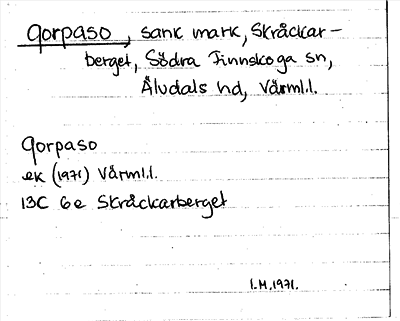 Qorpaso, sank mark, Skråckar-
berget, Södra Finnskoga sn,
Älvdals hd, Värml.l.
Qorpaso
ek (1971) Värml.l.
13C 6e Skråckarberget
I.M.1971.